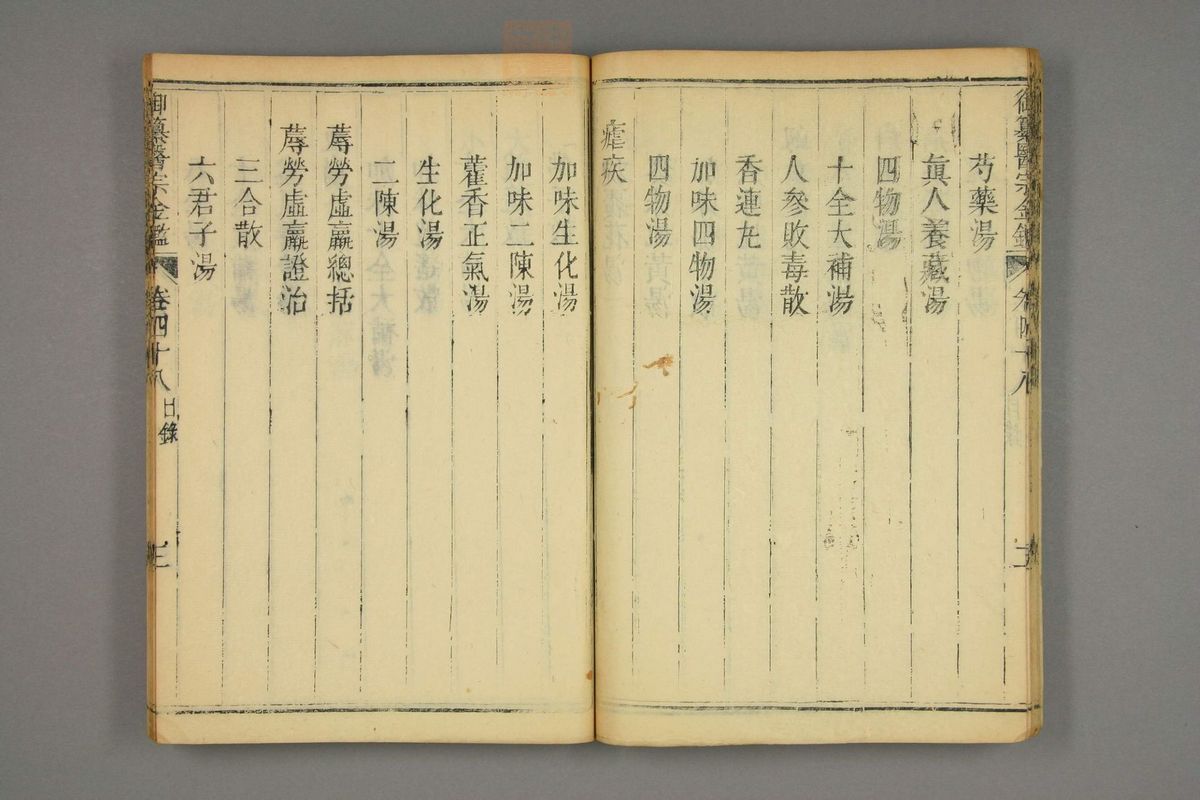 御纂醫宗金鑑
芍藥湯
眞人養藏湯
四物湯
十全大補湯
人參敗毒散
香連丸
加味四物湯
四物湯
瘧疾
加味生化湯
加味二陳湯
藿香正氣湯
生化湯
二陳湯
蓐勞虛羸總括
蓐勞虛羸證治
三合散
六君子湯
御纂醫宗金鑑 卷四十八 目錄 三